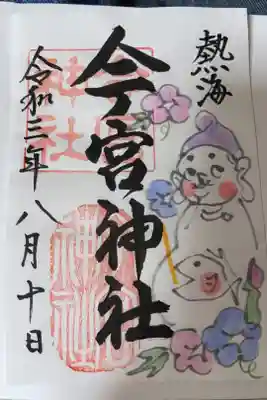 熱海
今宮神社
令和三年八月十日